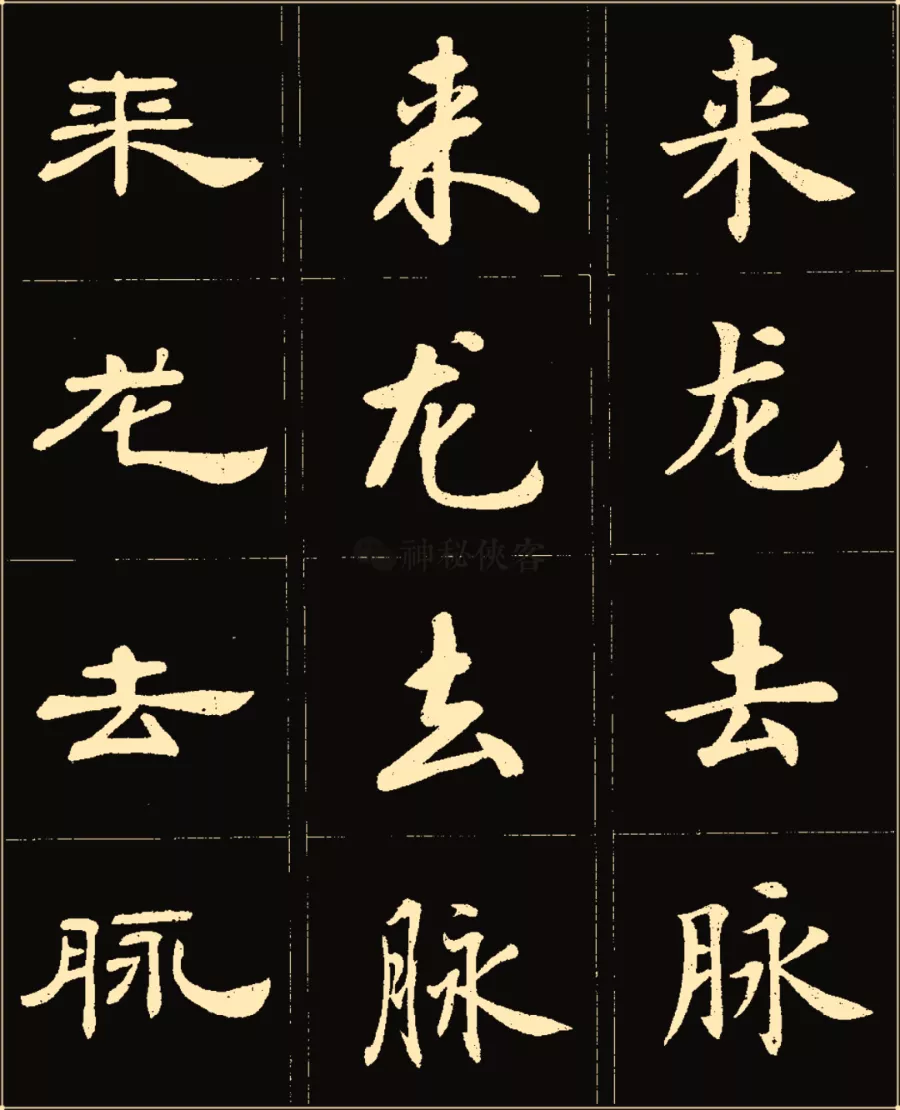 来 来 来
龙 龙 龙
神秘侠客
去 去 去
脉 脉 脉